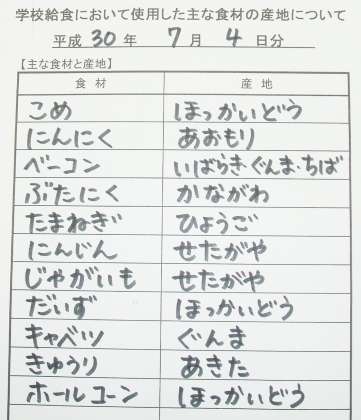 学校給食において使用した主な食材の産地について
平成 30 年 7 月 4 日分
【主な食材と産地】
食材 産地
こめ ほっかいどう
にんにく あおもり
ベーコン いばらき・ぐんま・ちば
ぶたにく かながわ
たまねぎ ひょうご
にんじん せたがや
じゃがいも せたがや
だいず ほっかいどう
キャベツ ぐんま
きゅうり あきた
ホールコーン ほっかいどう